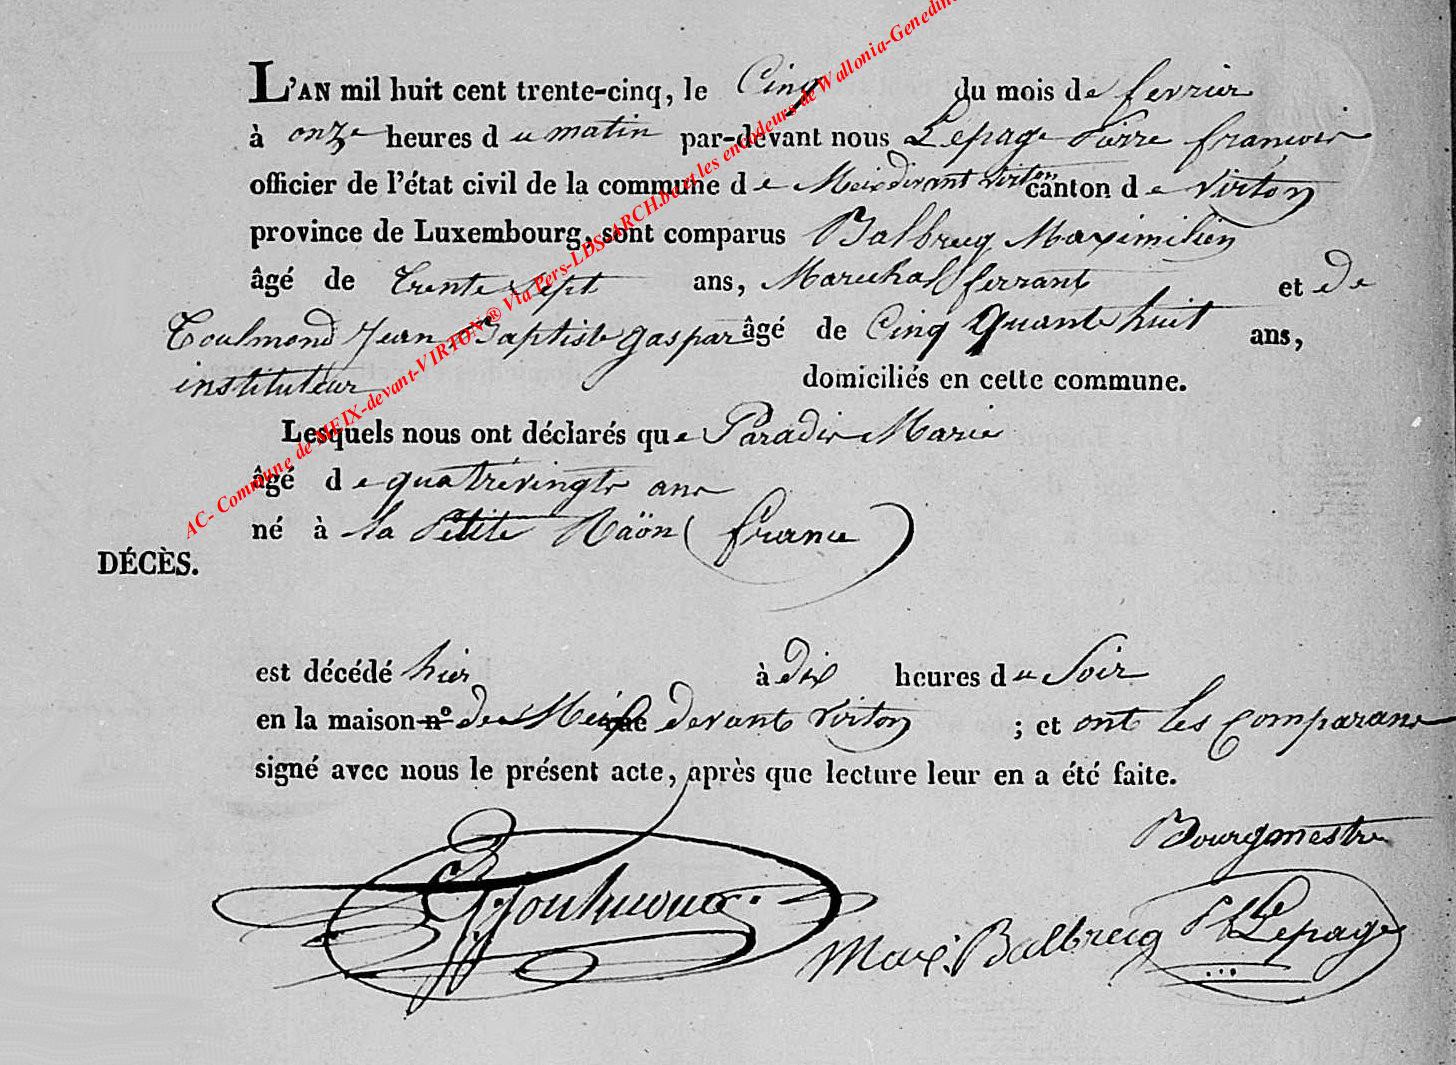 L'AN mil huit cent trente-cinq, le Cinq du mois de fevrier
à onze heures du matin par-devant nous Lepage Pierre françois
officier de l'état civil de la commune de Meix devant Virton canton de Virton
province de Luxembourg, sont comparus Balbrecq Maximilien
âgé de trente sept ans, Marechal ferrant et de
Toulmond Jean Baptiste gaspar âgé de Cinquante huit ans,
instituteur domiciliés en cette commune.
Lesquels nous ont déclarés que Paradis Marie
âgé de quatrévingts ans
né à la Petite Räön (france)
DÉCÈS.
est décédé hier à dix heures du Soir
en la maison n° de Meix rue devant Virton ; et ont les comparans
signé avec nous le présent acte, après que lecture leur en a été faite.
Bourgmestre
Toulmond
Max. Balbrecq
Lepage
AC- Commune de MEIX-devant-VIRTON® Via Pers-LDS-ARCH.be et les encodeurs de Wallonia-Genedin